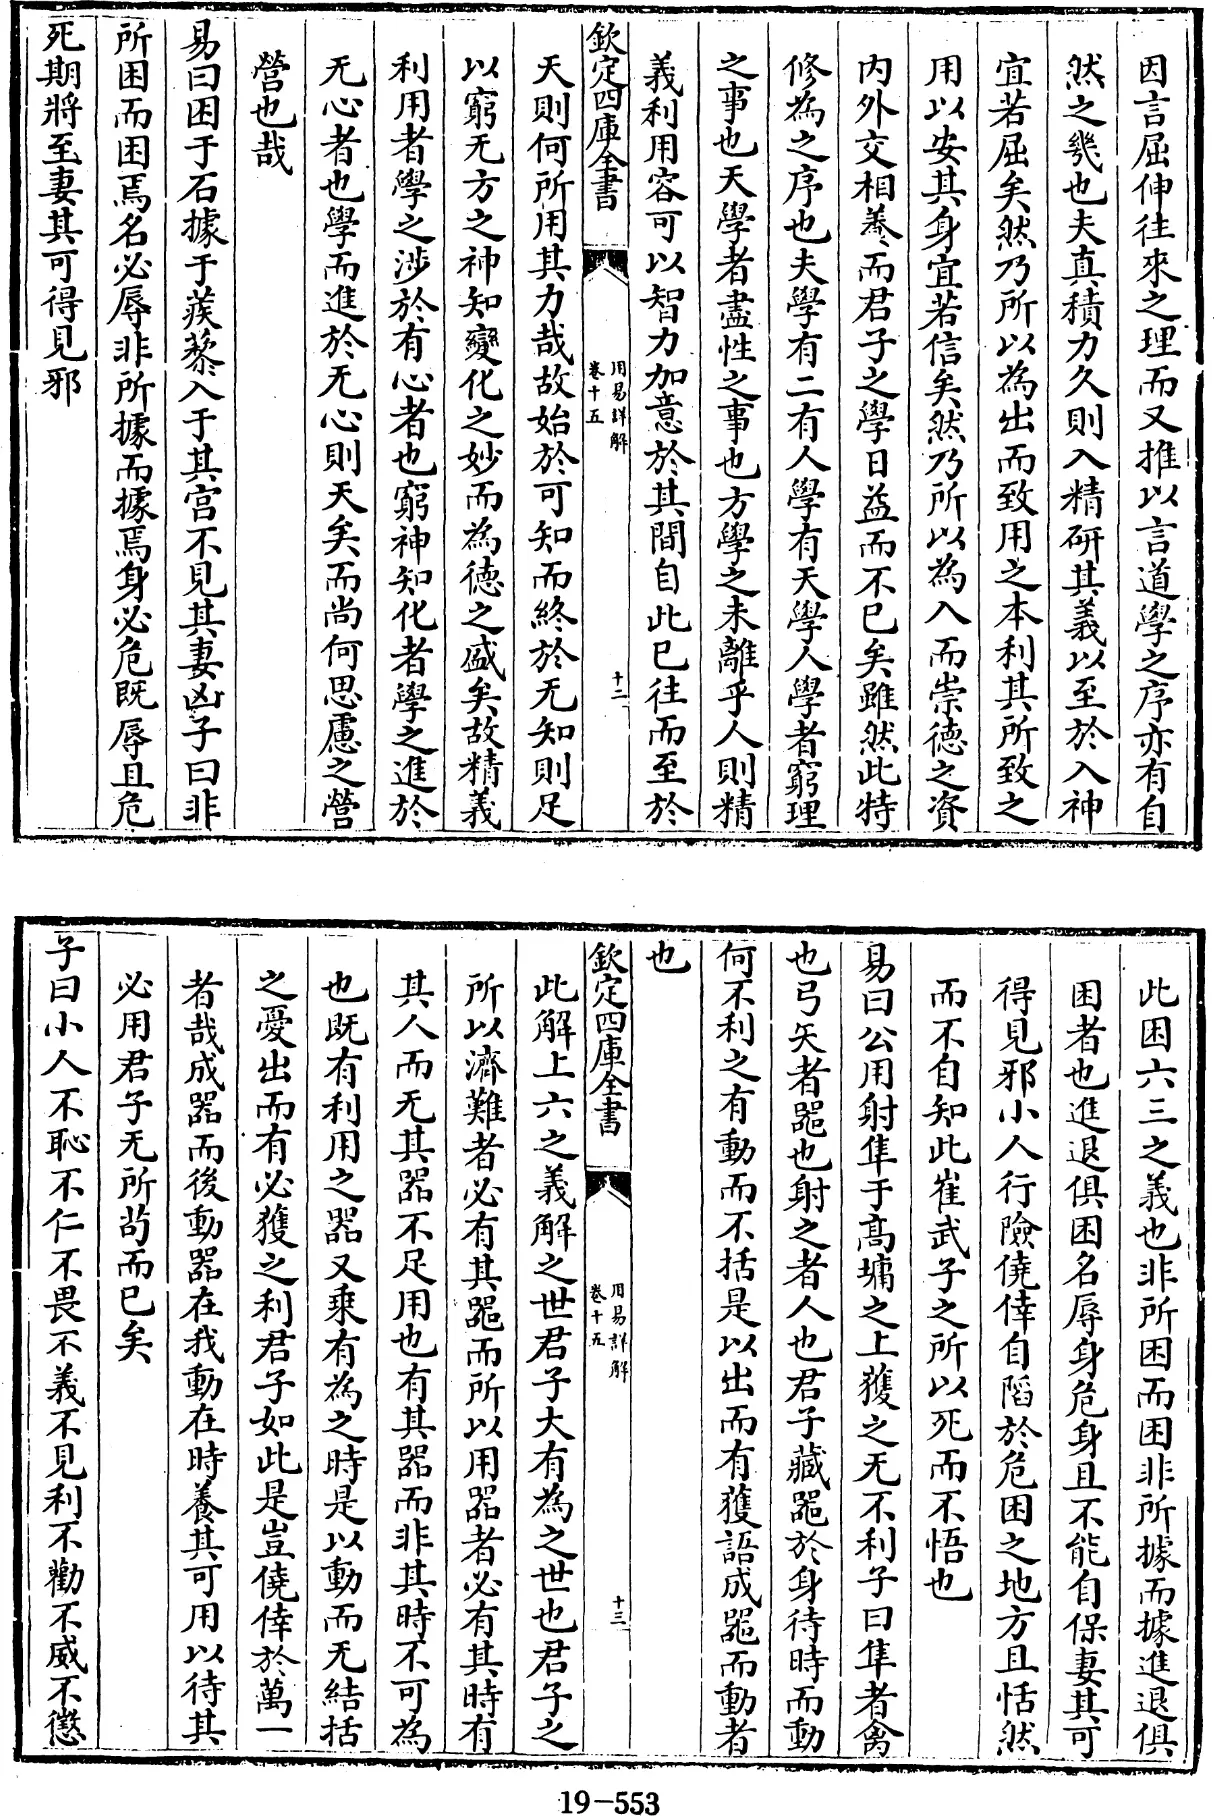 因言屈伸往來之理而又推以言道學之序亦有自
然之幾也夫真積力久則入精研其義以至於入神
宜若屈矣然乃所以為出而致用之本利其所致之
用以安其身宜若信矣然乃所以為入而崇德之資
內外交相養而君子之學日益而不已矣雖然此特
修為之序也夫學有二有人學有天學人學者窮理
之事也天學者盡性之事也方學之未離乎人則精
義利用容可以智力加意於其間自此已往而至於
欽定四庫全書
周易詳解
卷十五
十二
天則何所用其力哉故始於可知而終於无知則足
以窮无方之神知變化之妙而為德之盛矣故精義
利用者學之涉於有心者也窮神知化者學之進於
无心者也學而進於无心則天矣而尚何思慮之營
營也哉
易曰困于石據于蒺藜入于其宮不見其妻凶子曰非
所困而困焉名必辱非所據而據焉身必危既辱且危
死期將至妻其可得見邪
此困六三之義也非所困而困非所據而據進退俱
困者也進退俱困名辱身危身且不能自保妻其可
得見邪小人行險僥倖自陷於危困之地方且恬然
而不自知此崔武子之所以死而不悟也
易曰公用射隼于高墉之上獲之无不利子曰隼者禽
也弓矢者器也射之者人也君子藏器於身待時而動
何不利之有動而不括是以出而有獲語成器而動者
也
欽定四庫全書
周易詳解
卷十五
十三
此解上六之義解之世君子大有為之世也君子之
所以濟難者必有其器而所以用器者必有其時有
其人而无其器不足用也有其器而非其時不可為
也既有利用之器又乘有為之時是以動而无結括
之憂出而有必獲之利君子如此是豈僥倖於萬一
者哉成器而後動器在我動在時養其可用以待其
必用君子无所茍而已矣
子曰小人不恥不仁不畏不義不見利不勸不威不懲
19-553